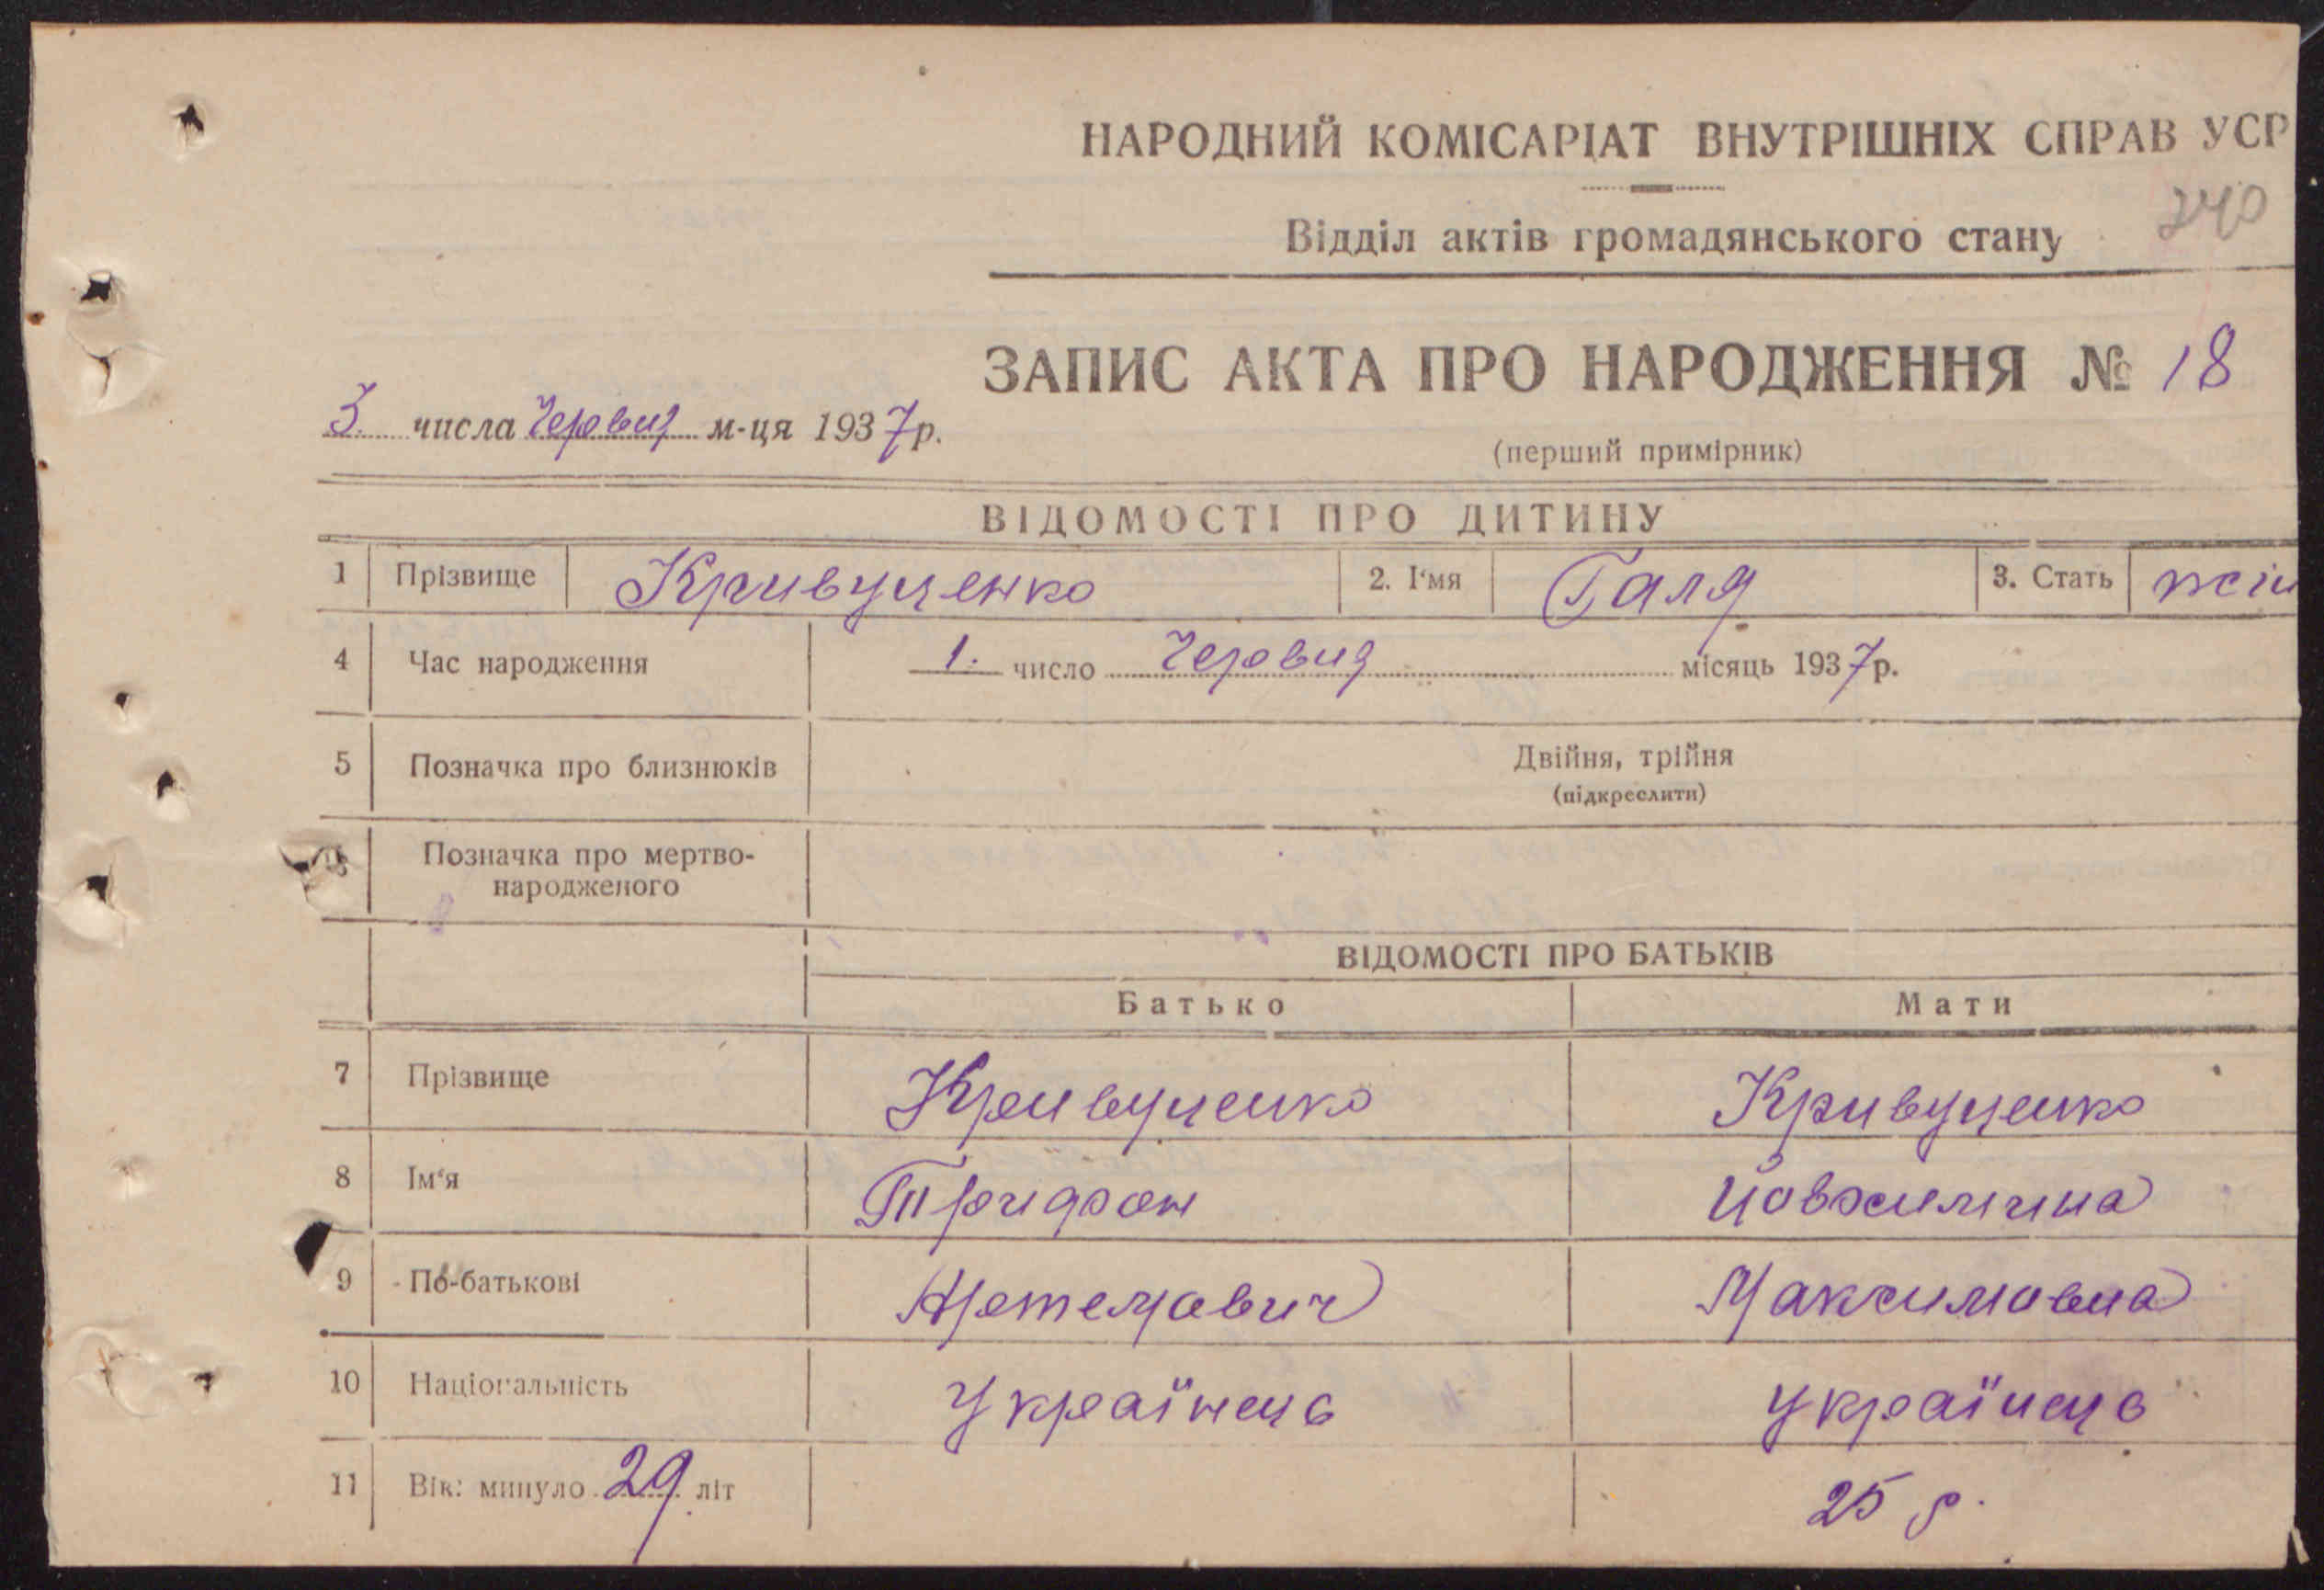 НАРОДНИЙ КОМІСАРІАТ ВНУТРІШНІХ СПРАВ УСР
240
Відділ актів громадянського стану
ЗАПИС АКТА ПРО НАРОДЖЕННЯ № 18
3. числа Червця м-ця 1937р.
(перший примірник)
ВІДОМОСТІ ПРО ДИТИНУ
1 Прізвище Кривуценко 2. І‘мя Галя 3. Стать жін
4 Час народження 1. число Червця місяць 1937р.
5 Позначка про близнюків Двійня, трійня
(підкреслити)
Позначка про мертво-
народженого
ВІДОМОСТІ ПРО БАТЬКІВ
Батько Мати
7 Прізвище Кривуценко Кривуценко
8 Ім‘я Трифон Йовхимина
9 По-батькові Артемович Максимовна
10 Національність Українець Українець
11 Вік: минуло 29 літ 25 р.